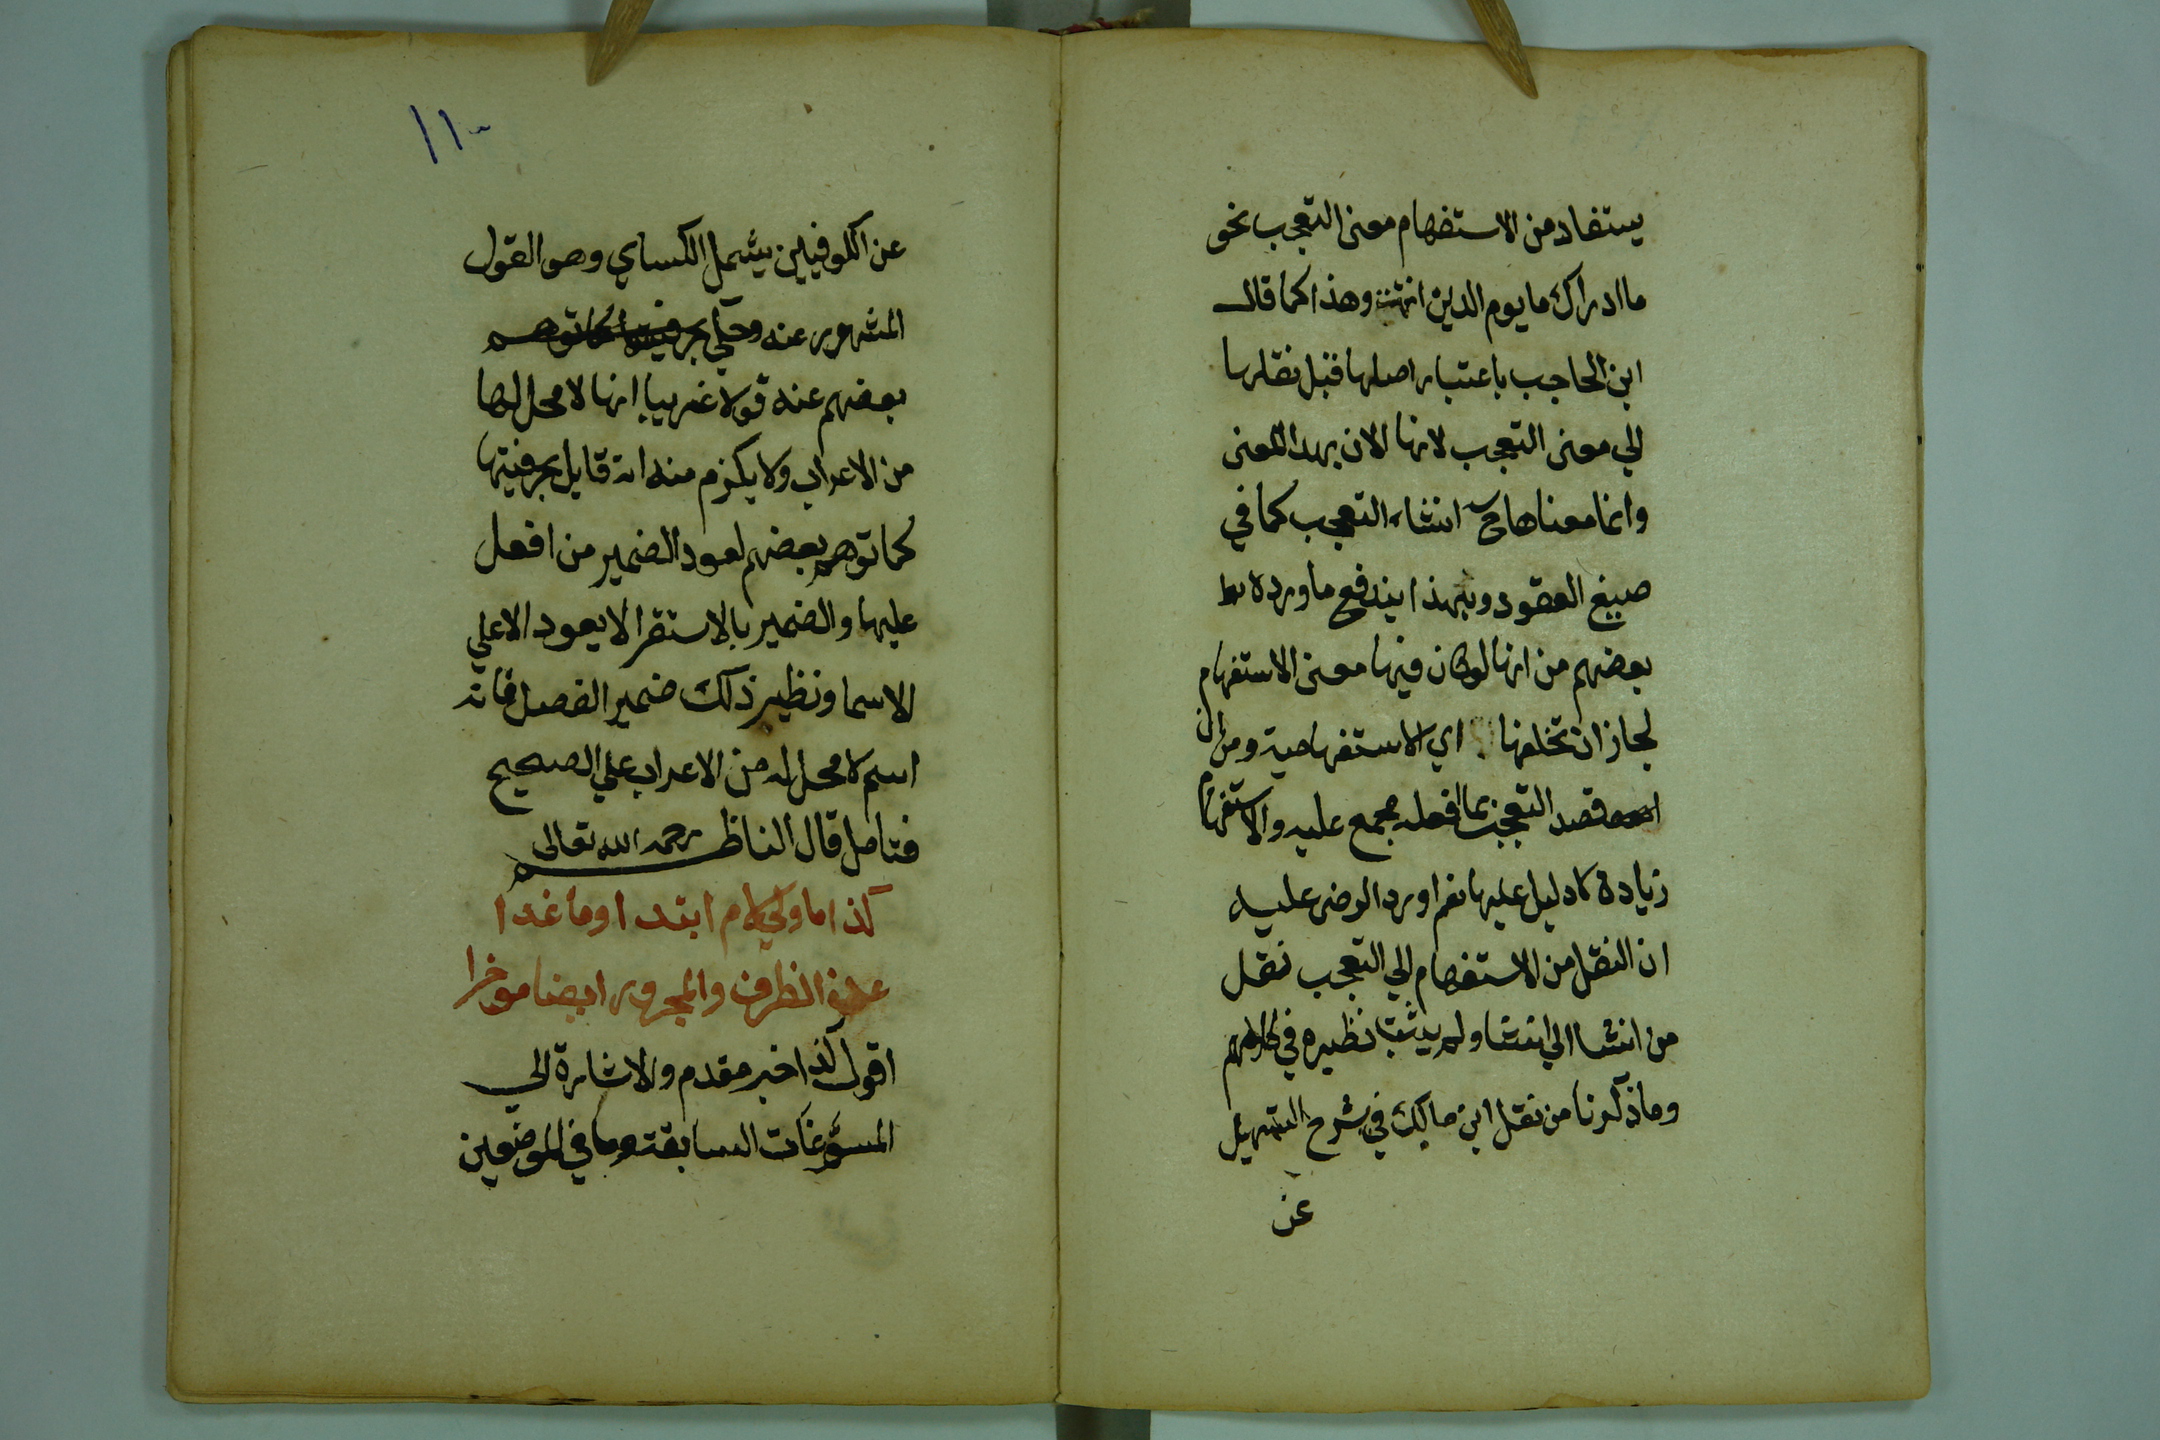 يستفاد من الاستفهام معنى التعجب نحو
ما ادراك ما يوم الدين انتهت وهذا كما قال
ابن الحاجب باعتبار اصلها قبل نقلها
الي معنى التعجب لانها الان بهذا المعنى
وانما معناها ح انشاء التعجب كما في
صيغ العقود وبهذا يندفع ما ورده
بعضهم من انها لو كان فيها معنى الاستفهام
لجاز ان تخلفها اي الاستفهامية ومن ان
قصد التعجب بما افعله مجمع عليه والاستفهام
زيادة لا دليل عليها نعم اورد الرضى عليه
ان النقل من الاستفهام الي التعجب نقل
من انشا الي انشا ولم يثبت نظيره في كلامهم
وما ذكرنا من نقل ابن مالك في شرح التسهيل
عن
١١
عن الكوفيين يشمل الكساي وهو القول
المشهور عنه وحكي
بعضهم عنه قولا غريبا انها لا محل لها
من الاعراب ولا يلزم منه انه قايل بحرفيتها
كما توهم بعضهم لعود الضمير من افعل
عليها والضمير بالاستقرا لا يعود الا علي
الاسما ونظير ذلك ضمير الفصل فانه
اسم لا محل له من الاعراب علي الصحيح
فتامل قال الناظم رحمه الله تعالى
كذا اما ولي لام ابتدا وما غدا
عنه الظرف والمجرور ايضا موخرا
اقول كذا خبر مقدم والاشارة الى
المسوغات السابقة وما في الموضعين